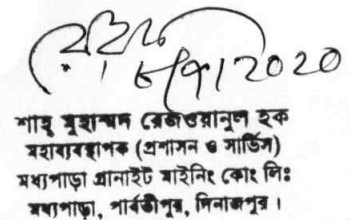 শাহ্ মুহাম্মদ রেজওয়ানুল হক
মহাব্যবস্থাপক (প্রশাসন ও সার্ভিস)
মধ্যপাড়া গ্রানাইট মাইনিং কোং লিঃ
মধ্যপাড়া, পার্বতীপুর, দিনাজপুর।